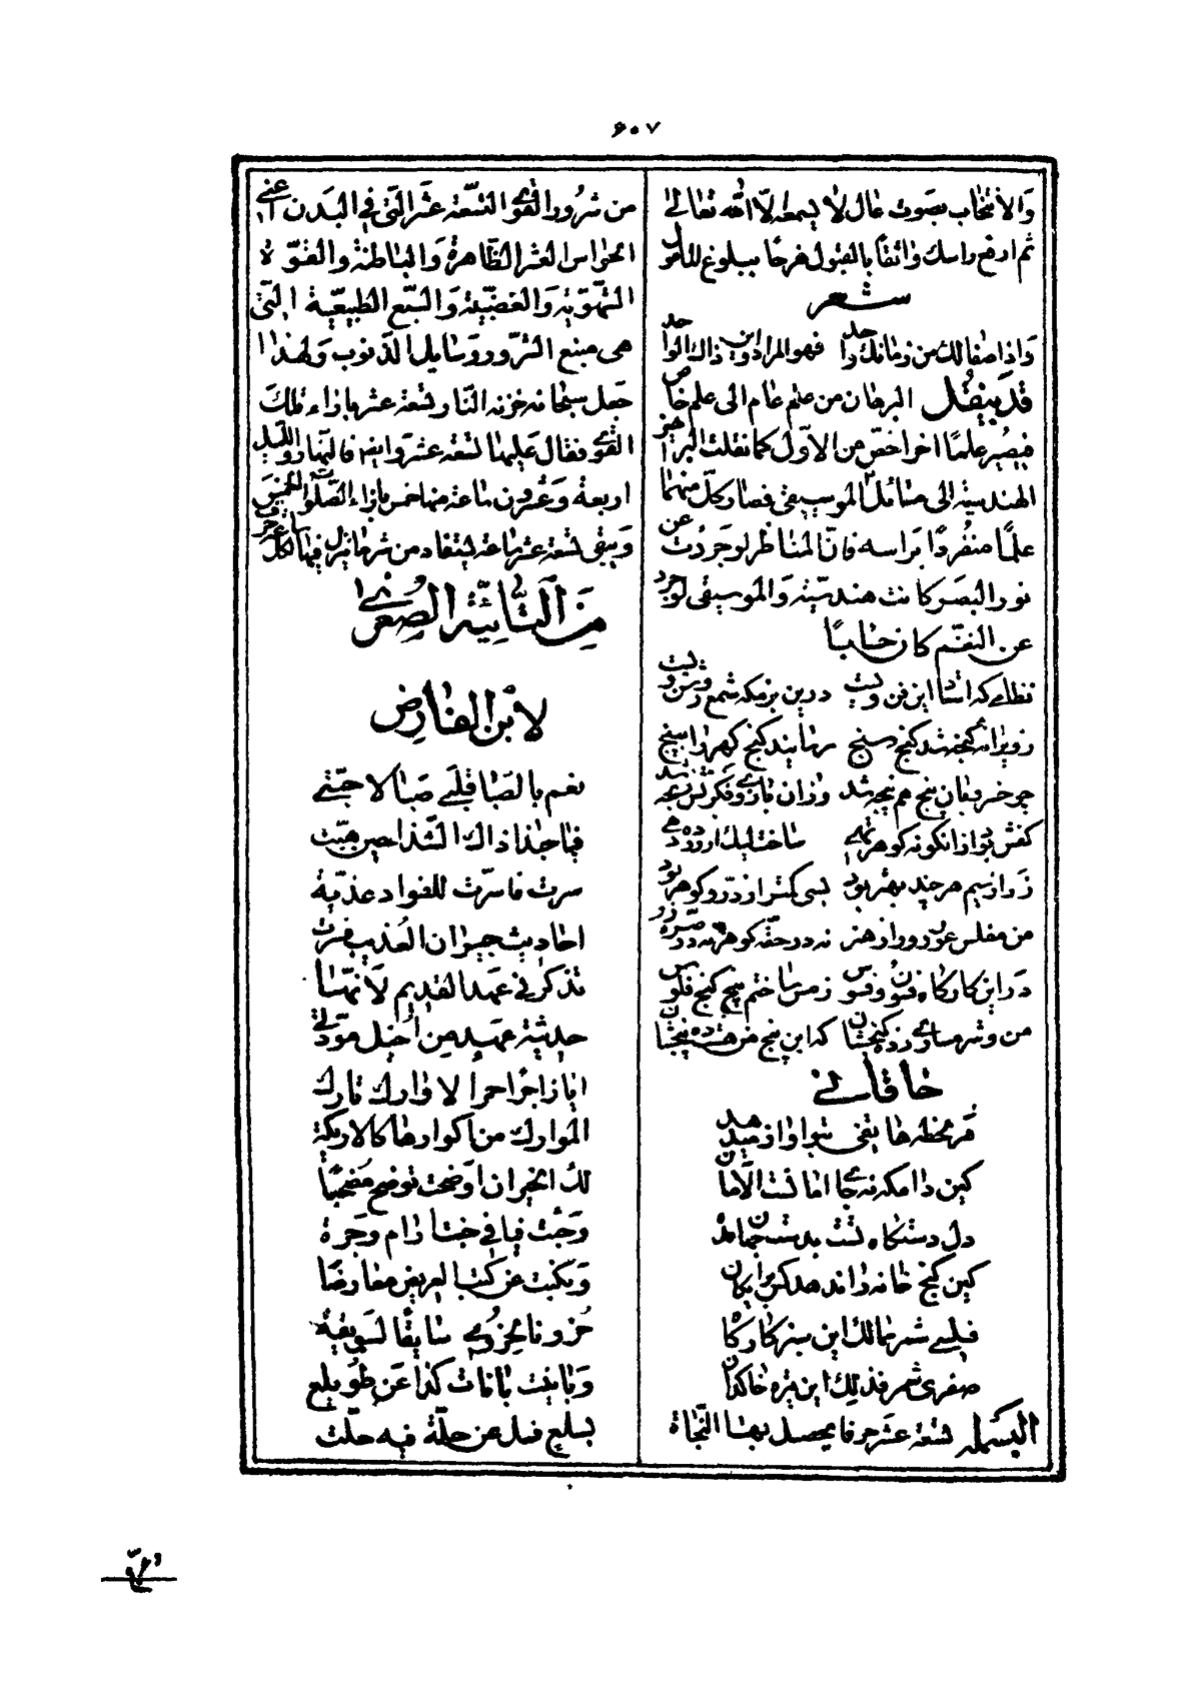 ۶۰۷
والانتحاب بصوت عال لا يسمعه الا الله تعالى
ثم ارفع راسك واثقا بالقبول فرحا ببلوغ المأمول
شعر
واذا صفا لك من زمانك واحد فهو المراد واين ذاك الواحد
قد ينقل البرهان من علم عام الى علم خاص
فيصير علما اخر اخص من الاول كما نقلت البراهين
الهندسية الى مسائل الموسيقى فصار كل منهما
علما منفردا براسه فان المناظر لو جردت عن
نور البصر كانت هندسية والموسيقى لو جرد
عن النغم كان حسابا
نظامى كه استاد اين فن ويست درين بزمگه شمع روشن ويست
ز ويرانه گنجه شد گنج سنج رسانيد گنج گهر را به پنج
چو خسرو بآن پنج هم پنجه شد وزان بازوى فكرتش رنجه شد
كفش بود از انگونه گوهر تهى ساختش ليك از زر ده دهى
زر از سيم هر چند بهتر بود بسى كمتر از در و گوهر بود
من مفلس عور دور از هنر نه در حقه گوهر نه در صره زر
در اين كارگاه فسون و فسوس ز مس ساختم پنج گنج فلوس
من و شرمسارى ز ده گنجشان كه اين پنج من هست ده پنجشان
خاقانى
هر لحظه هاتفى بتو آواز ميدهد
كاين دامگه نه جاى امانست الامان
دل دستگاه تست بدست جهان مده
كاين گنج خانه را ندهد كس برايگان
فلسى شمر ممالك اين سبز كارگاه
صفرى شمر فذلك اين تيره خاكدان
البسملة تسعة عشر حرفا يحصل بها النجاة
من شرور القوى التسعة عشر التى فى البدن اعنى
الحواس العشر الظاهرة والباطنة والقوة
الشهوية والغضبية والسبع الطبيعية التى
هى منبع الشرور ووسايل الذنوب ولهذا
جعل سبحانه خزنة النار تسعة عشر بازاء تلك
القوى فقال عليها تسعة عشر وايضا فالنهار والليل
اربعة وعشرون ساعة منها خمس بازاء الصلوات الخمس
ويبقى تسعة عشر ساعة يستعاذ من شر ما ينزل فيها لكل ساعة حرف
من التائية الصغرى
لابن الفارض
نعم بالصبا قلبى صبا لاحبتى
فيا حبذا ذاك الشذا حين هبت
سرت فاسرت للفواد غدية
احاديث جيران العذيب فسرت
تذكرنى عهد القديم لانها
حديثة عهد من اهيل مودتى
ايا زاجرا حمر الاوارك تارك
الموارك من اكوارها كالاريكة
لك الخير ان اوضحت توضح مضحيا
وجبت فيافى خبت ارام وجرة
ونكبت عن كثب العريض معارضا
حزونا لحزوى سائقا لسويقة
وباينت بانات كذا عن طويلع
بسلع فسل عن حلة فيه حلت